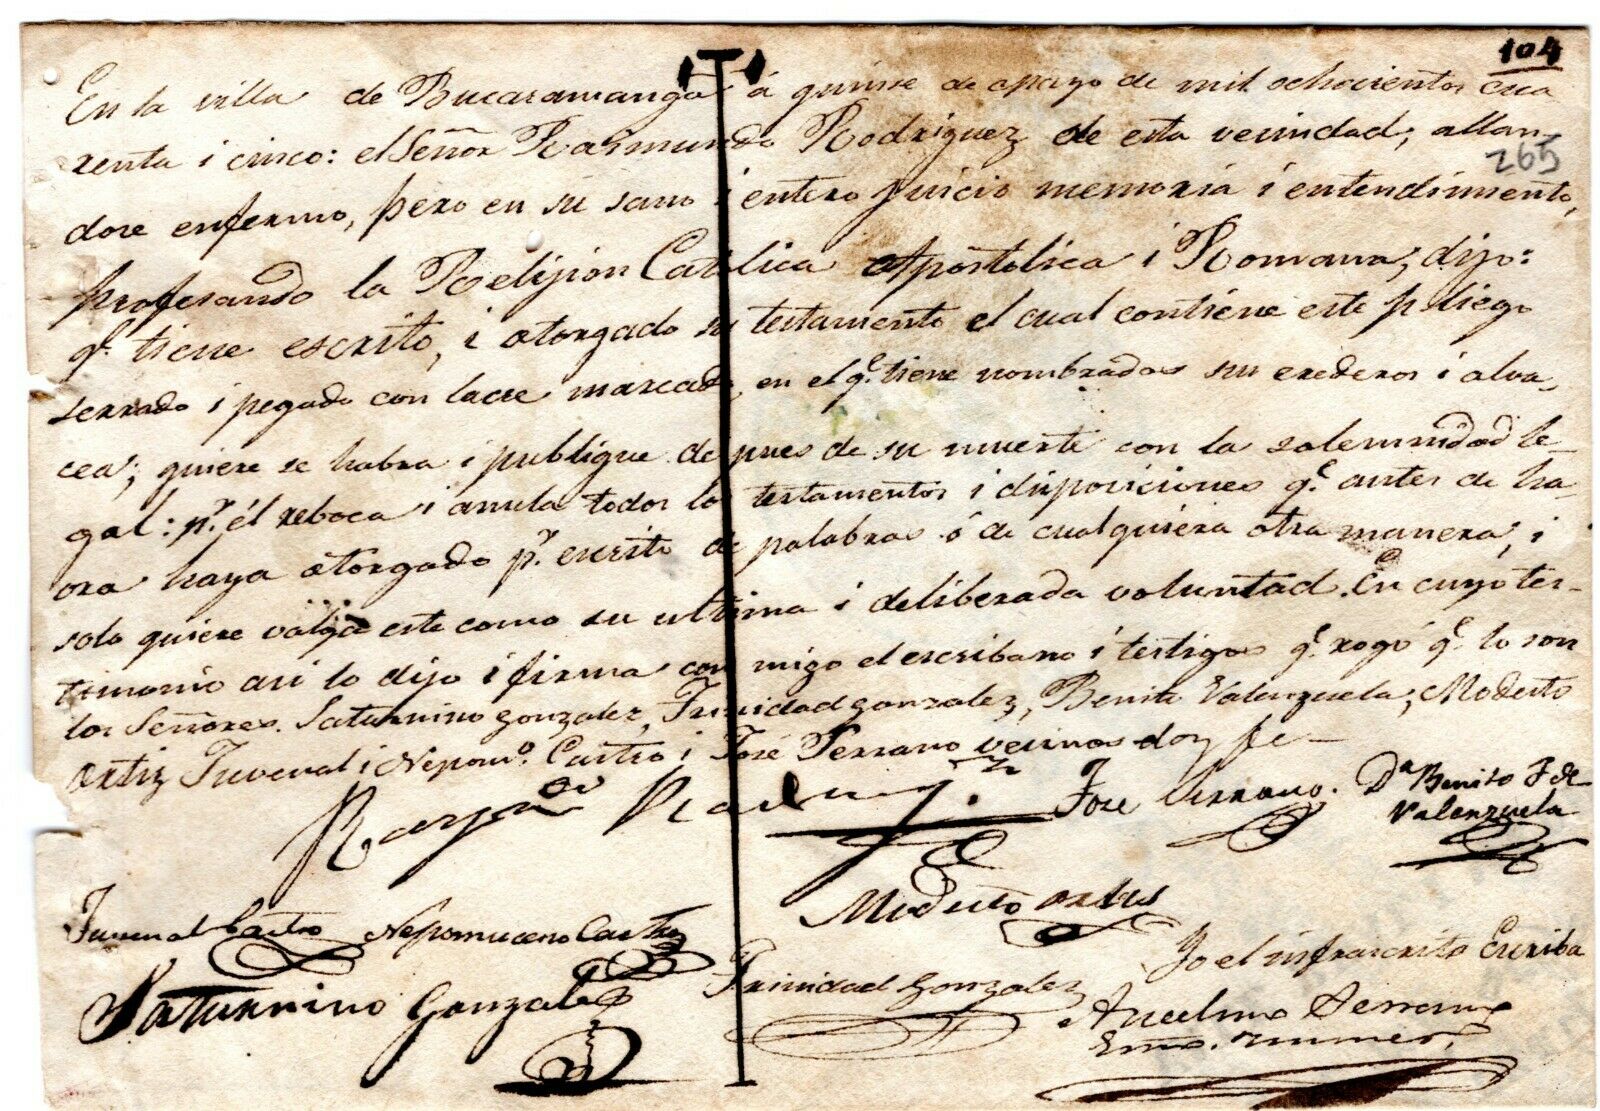 104
En la villa de Bucaramanga á quinse de mayo de mil ochocientos cua
renta i cinco: el Señor Raimundo Rodriguez de esta vecindad; allan-
265
dose enfermo, pero en su sano i entero juicio memoria i entendimiento,
profesando la Relijion Catolica Apostolica i Romana, dijo:
qe. tiene escrito, i otorgado su testamento el cual contiene este pliego
serrado i pegado con lacre marcado, en el qe. tiene nombrados sus erederos i alva,
ceas; quiere se habra i publique despues de su muerte con la solemnidad le-
gal: pr. él reboca i anula todos los testamentos i disposiciones qe. antes de ha-
ora haya otorgado pr. escrito de palabras ó de cualquiera otra manera, i
solo quiere valga este como su ultima i deliberada voluntad. En cuyo tes-
timonio asi lo dijo i firma con migo el escribano i testigos qe. rogó qe. lo son
los Señores. Saturnino Gonzalez, Trinidad Gonzalez, Benito Valenzuela, Modesto
Ortiz Juvenal i Nepomo. Castro i José Serrano vecinos doy fe—
José Serrano. Benito F de
Valenzuela
Modesto Ortis
Juvenal Castro Nepomuceno Castro
Yo el infrascrito Escriba
Saturnino Gonzalez
Trinidad Gonzalez
Ancelmo Serrano